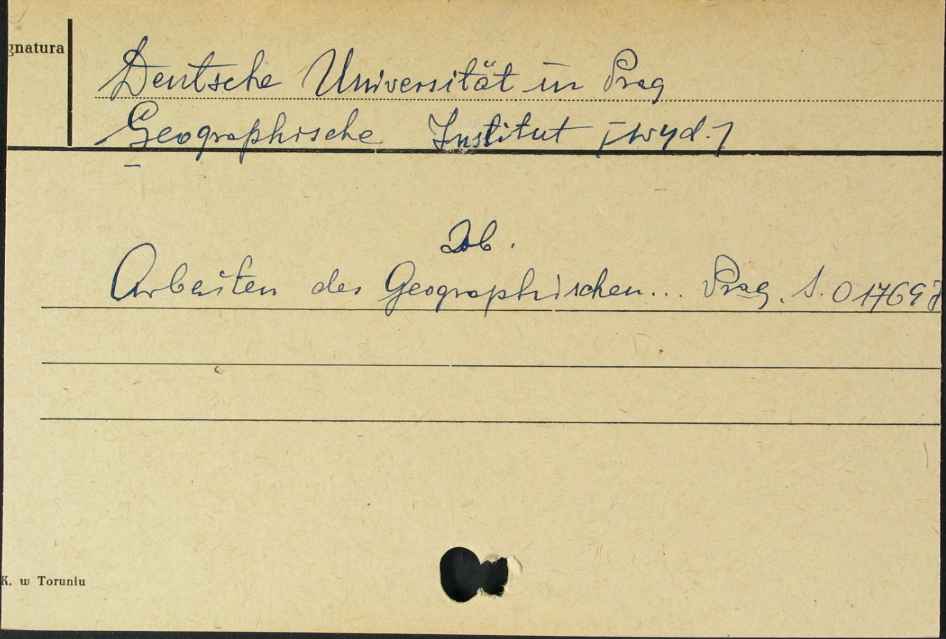 gnatura
Deutsche Universität in Prag
Geographische Institut [wyd.]
Zob.
Arbeiten des Geographischen... Prag. S. 01769
K. w Toruniu